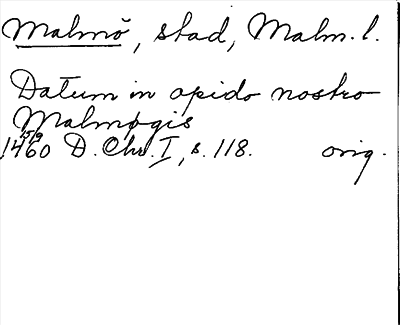 Malmö, stad, Malm. l.
Datum in opido nostro
Malmøgis
1460 15/9 D. Chr. I, s. 118. orig.